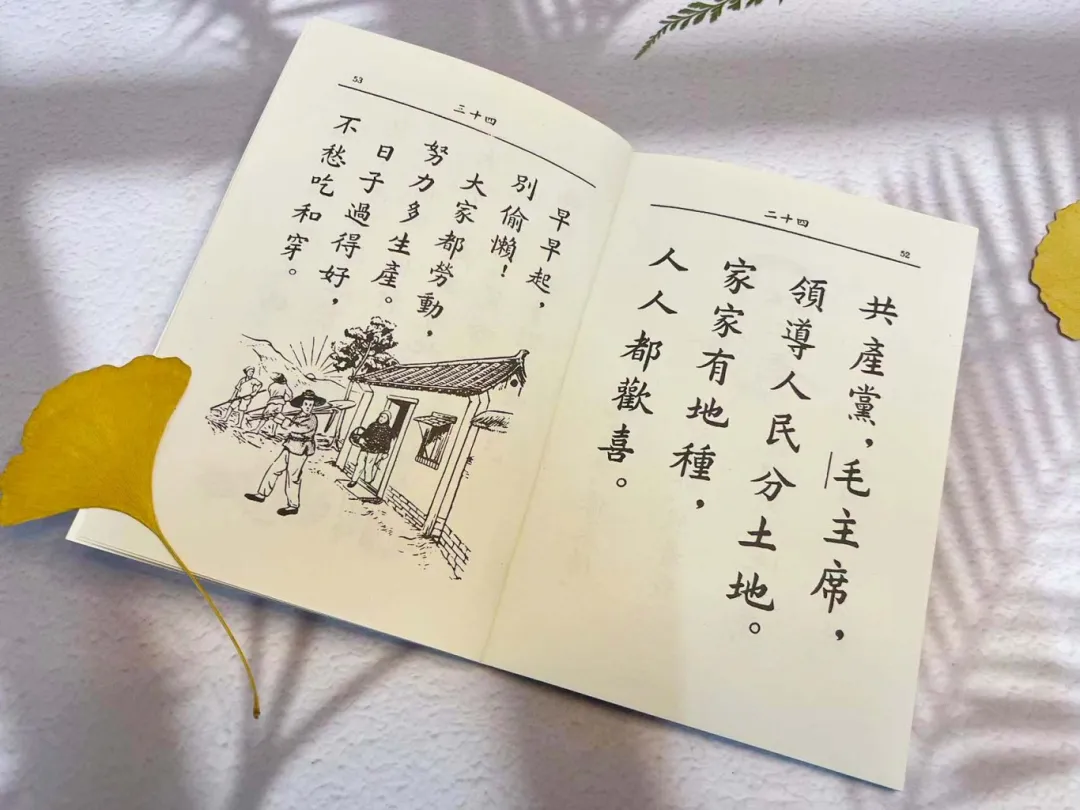 52
二十四
共產黨，毛主席，
領導人民分土地。
家家有地種，
人人都歡喜。
53
二十四
早早起，
別偷懶！
大家都勞動，
努力多生產。
日子過得好，
不愁吃和穿。